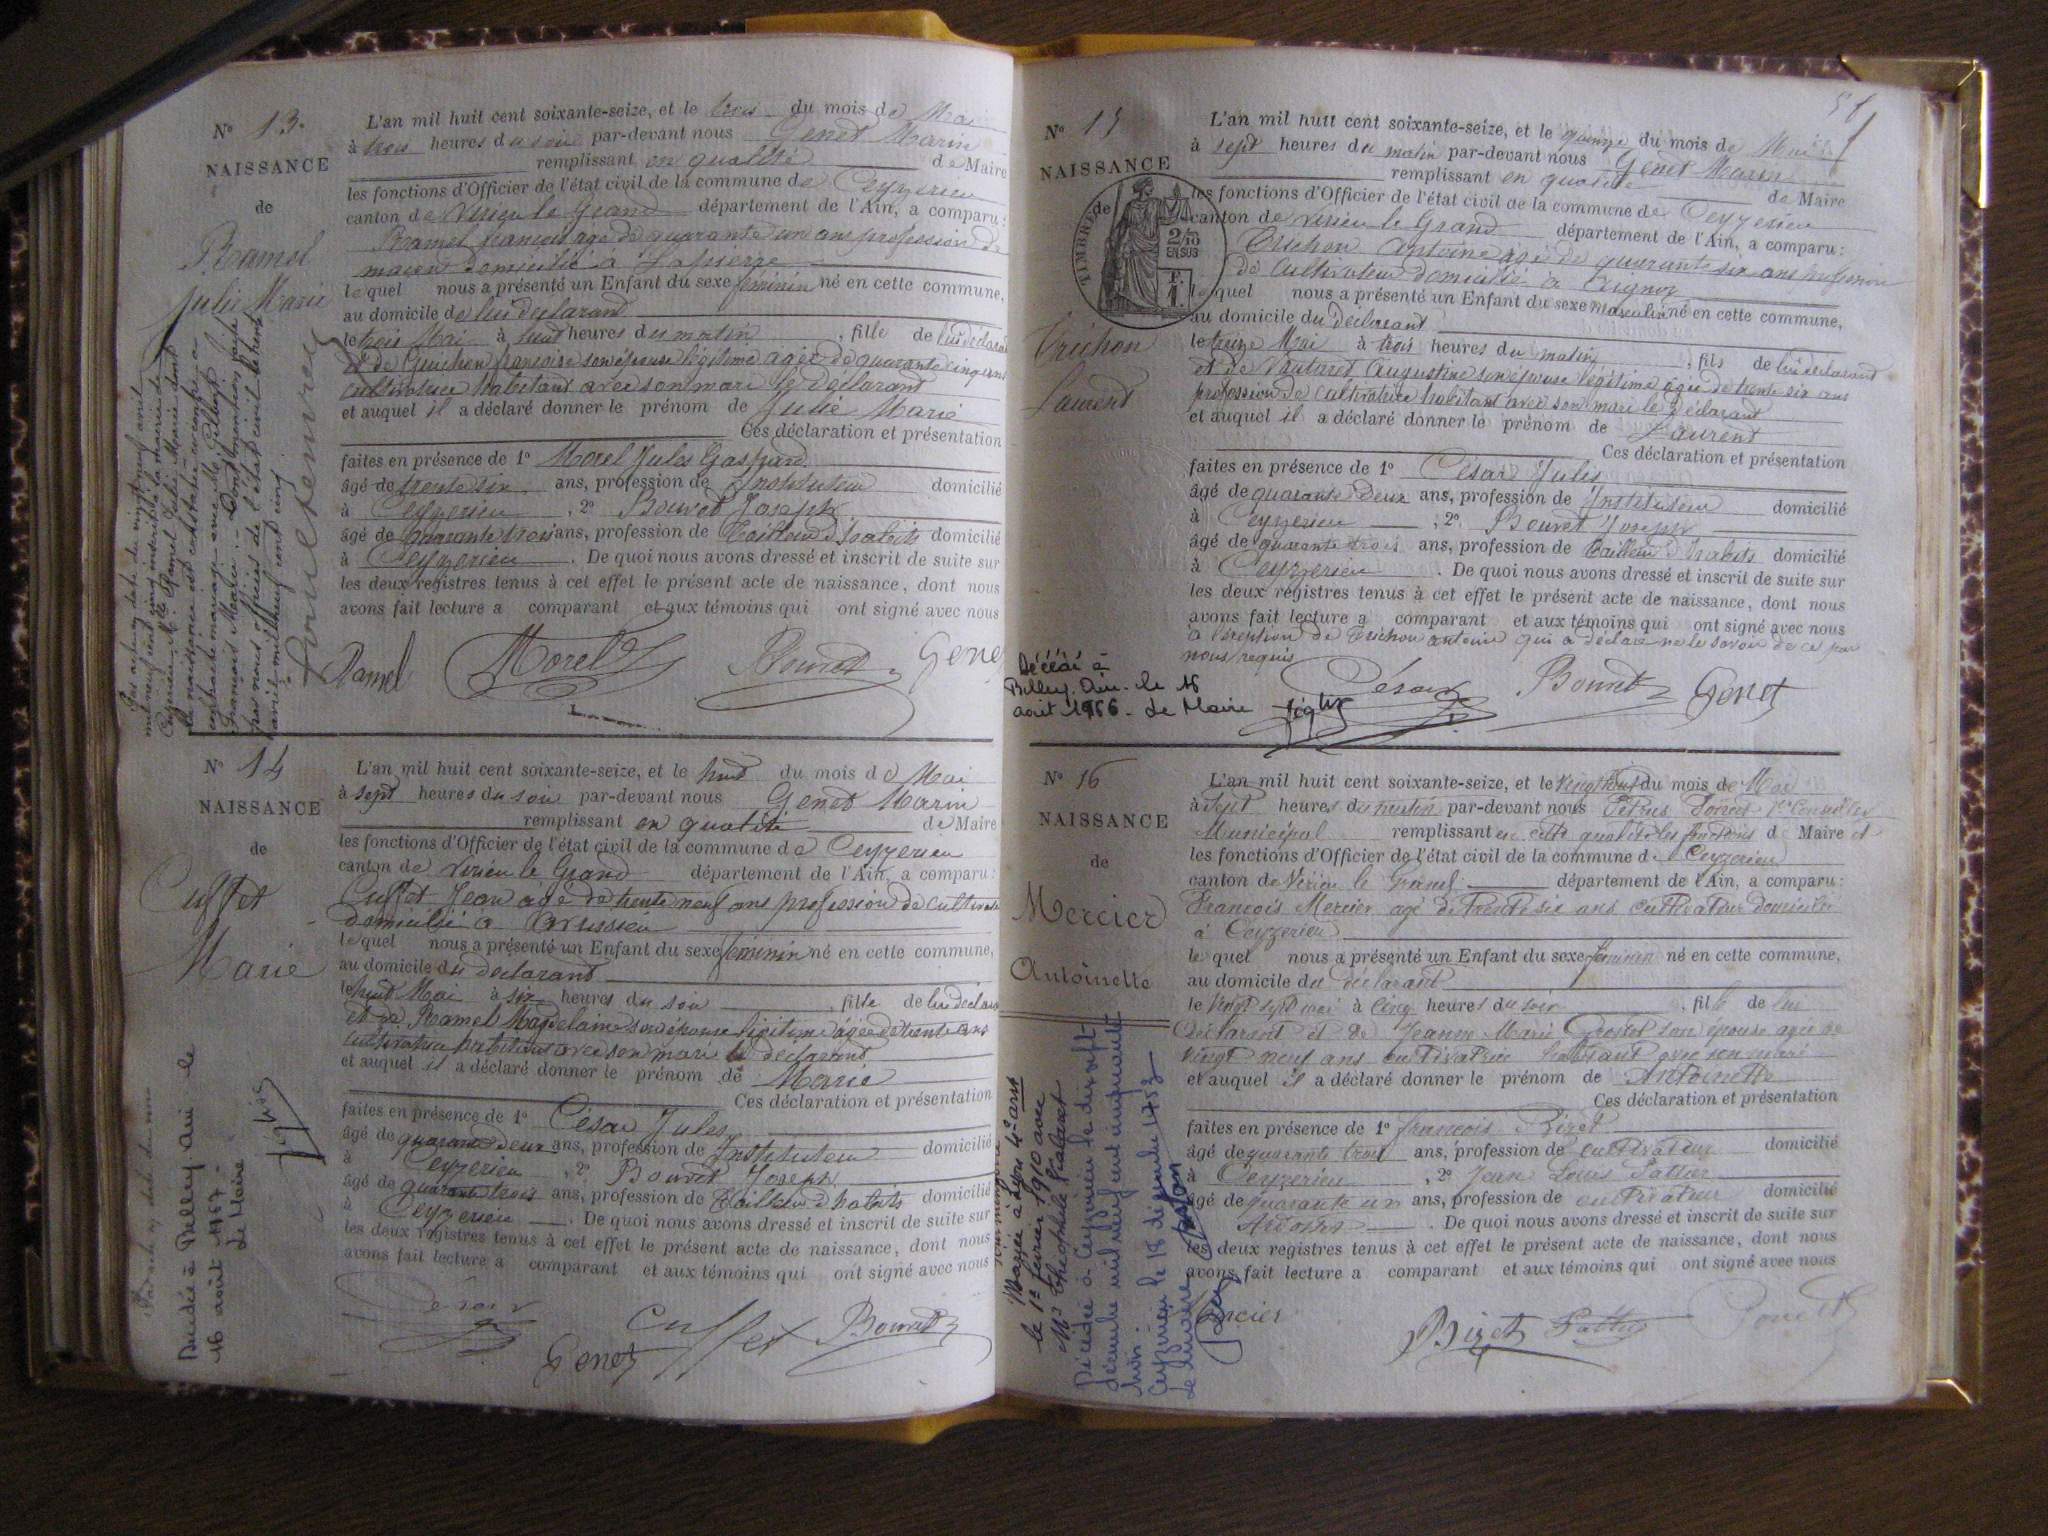 N° 13.
NAISSANCE
de
Ramel
Julie Marie
L'an mil huit cent soixante-seize, et le trois du mois de Mai
à trois heures du soir par-devant nous Genet Marin
remplissant en qualité de Maire
les fonctions d'Officier de l'état civil de la commune de Ceyzerieu
canton de Virieu le Grand département de l'Ain, a comparu :
Ramel françois agé de quarante un ans profession de
maçon domicilié à Lapierre
lequel nous a présenté un Enfant du sexe féminin né en cette commune,
au domicile de lui déclarant
le trois Mai à huit heures du matin, fille de lui déclarant
et de Guichon françoise son épouse légitime agée de quarante cinq ans
cultivatrice habitant avec son mari le déclarant
et auquel il a déclaré donner le prénom de Julie Marie
Ces déclaration et présentation
faites en présence de 1° Morel Jules Gaspard
âgé de trente six ans, profession de Instituteur domicilié
à Ceyzerieu, 2° Bouvet Joseph
âgé de quarante trois ans, profession de Tailleur d'habits domicilié
à Ceyzerieu. De quoi nous avons dressé et inscrit de suite sur
les deux registres tenus à cet effet le présent acte de naissance, dont nous
avons fait lecture a comparant et aux témoins qui ont signé avec nous
Ramel Morel Bouvet Genet
Par acte en date du vingt neuf avril
mil neuf cent cinq inscrit à la mairie de
Ceyzerieu, Mlle Ramel Julie Marie dont
la naissance est constatée ci-contre a
contracté mariage avec Mr
François Marie. Dont mention faite
par nous officier de l'état civil le trente
avril mil neuf cent cinq
N° 14
NAISSANCE
de
Cuffet
Marie
L'an mil huit cent soixante-seize, et le huit du mois de Mai
à sept heures du soir par-devant nous Genet Marin
remplissant en qualité de Maire
les fonctions d'Officier de l'état civil de la commune de Ceyzerieu
canton de Virieu le Grand département de l'Ain, a comparu :
Cuffet Jean âgé de trente neuf ans profession de cultivateur
domicilié à
lequel nous a présenté un Enfant du sexe féminin né en cette commune,
au domicile du déclarant
le huit Mai à six heures du soir, fille de lui déclarant
et de Ramel Magdelaine son épouse légitime âgée de trente ans
cultivatrice habitant avec son mari le déclarant
et auquel il a déclaré donner le prénom de Marie
Ces déclaration et présentation
faites en présence de 1° César Jules
âgé de quarante deux ans, profession de Instituteur domicilié
à Ceyzerieu, 2° Bouvet Joseph
âgé de quarante trois ans, profession de Tailleur d'habits domicilié
à Ceyzerieu. De quoi nous avons dressé et inscrit de suite sur
les deux registres tenus à cet effet le présent acte de naissance, dont nous
avons fait lecture a comparant et aux témoins qui ont signé avec nous
César Cuffet Bouvet
Genet
Décédée à Belley Ain le
16 août 1957.
Le Maire
N° 15
NAISSANCE
de
TIMBRE
2/10
EN SUS
F.
1.
Trichon
Laurent
L'an mil huit cent soixante-seize, et le quinze du mois de Mai
à sept heures du matin par-devant nous Genet Marin
remplissant en qualité de Maire
les fonctions d'Officier de l'état civil de la commune de Ceyzerieu
canton de Virieu le Grand département de l'Ain, a comparu :
Trichon Antoine agé de quarante six ans profession
de cultivateur domicilié à
lequel nous a présenté un Enfant du sexe masculin né en cette commune,
au domicile du déclarant
le treize Mai à trois heures du matin, fils de lui déclarant
et de Vautaret Augustine son épouse légitime agée de trente six ans
profession de cultivatrice habitant avec son mari le déclarant
et auquel il a déclaré donner le prénom de Laurent
Ces déclaration et présentation
faites en présence de 1° César Jules
âgé de quarante deux ans, profession de Instituteur domicilié
à Ceyzerieu, 2° Bouvet Joseph
âgé de quarante trois ans, profession de Tailleur d'habits domicilié
à Ceyzerieu. De quoi nous avons dressé et inscrit de suite sur
les deux registres tenus à cet effet le présent acte de naissance, dont nous
avons fait lecture a comparant et aux témoins qui ont signé avec nous
à l'exception de Trichon antoine qui a déclaré ne le savoir de ce par
nous requis
César Bouvet Genet
Décédé à
Belley. Ain. le 16
août 1966 - Le Maire
N° 16
NAISSANCE
de
Mercier
Antoinette
L'an mil huit cent soixante-seize, et le vingt huit du mois de Mai
à sept heures du matin par-devant nous Conseiller
Municipal remplissant en cette qualité les fonctions de Maire et
les fonctions d'Officier de l'état civil de la commune de Ceyzerieu
canton de Virieu le Grand département de l'Ain, a comparu :
François Mercier agé de trente six ans cultivateur domicilié
à Ceyzerieu
lequel nous a présenté un Enfant du sexe féminin né en cette commune,
au domicile du déclarant
le vingt sept mai à cinq heures du soir, fille de lui
déclarant et de Jeanne Marie son épouse agée de
vingt neuf ans cultivatrice habitant avec son mari
et auquel il a déclaré donner le prénom de Antoinette
Ces déclaration et présentation
faites en présence de 1° françois Bizet
âgé de quarante trois ans, profession de cultivateur domicilié
à Ceyzerieu, 2° Jean Louis
âgé de quarante un ans, profession de cultivateur domicilié
. De quoi nous avons dressé et inscrit de suite sur
les deux registres tenus à cet effet le présent acte de naissance, dont nous
avons fait lecture a comparant et aux témoins qui ont signé avec nous
Mercier Bizet
Mariée à Lyon 4e arrt
le 1er février 1910 avec
Mr Théophile
Décédée à Ceyzerieu le dix sept
décembre mil neuf cent cinquante
trois.
Ceyzerieu le 18 décembre 1953
Le Maire